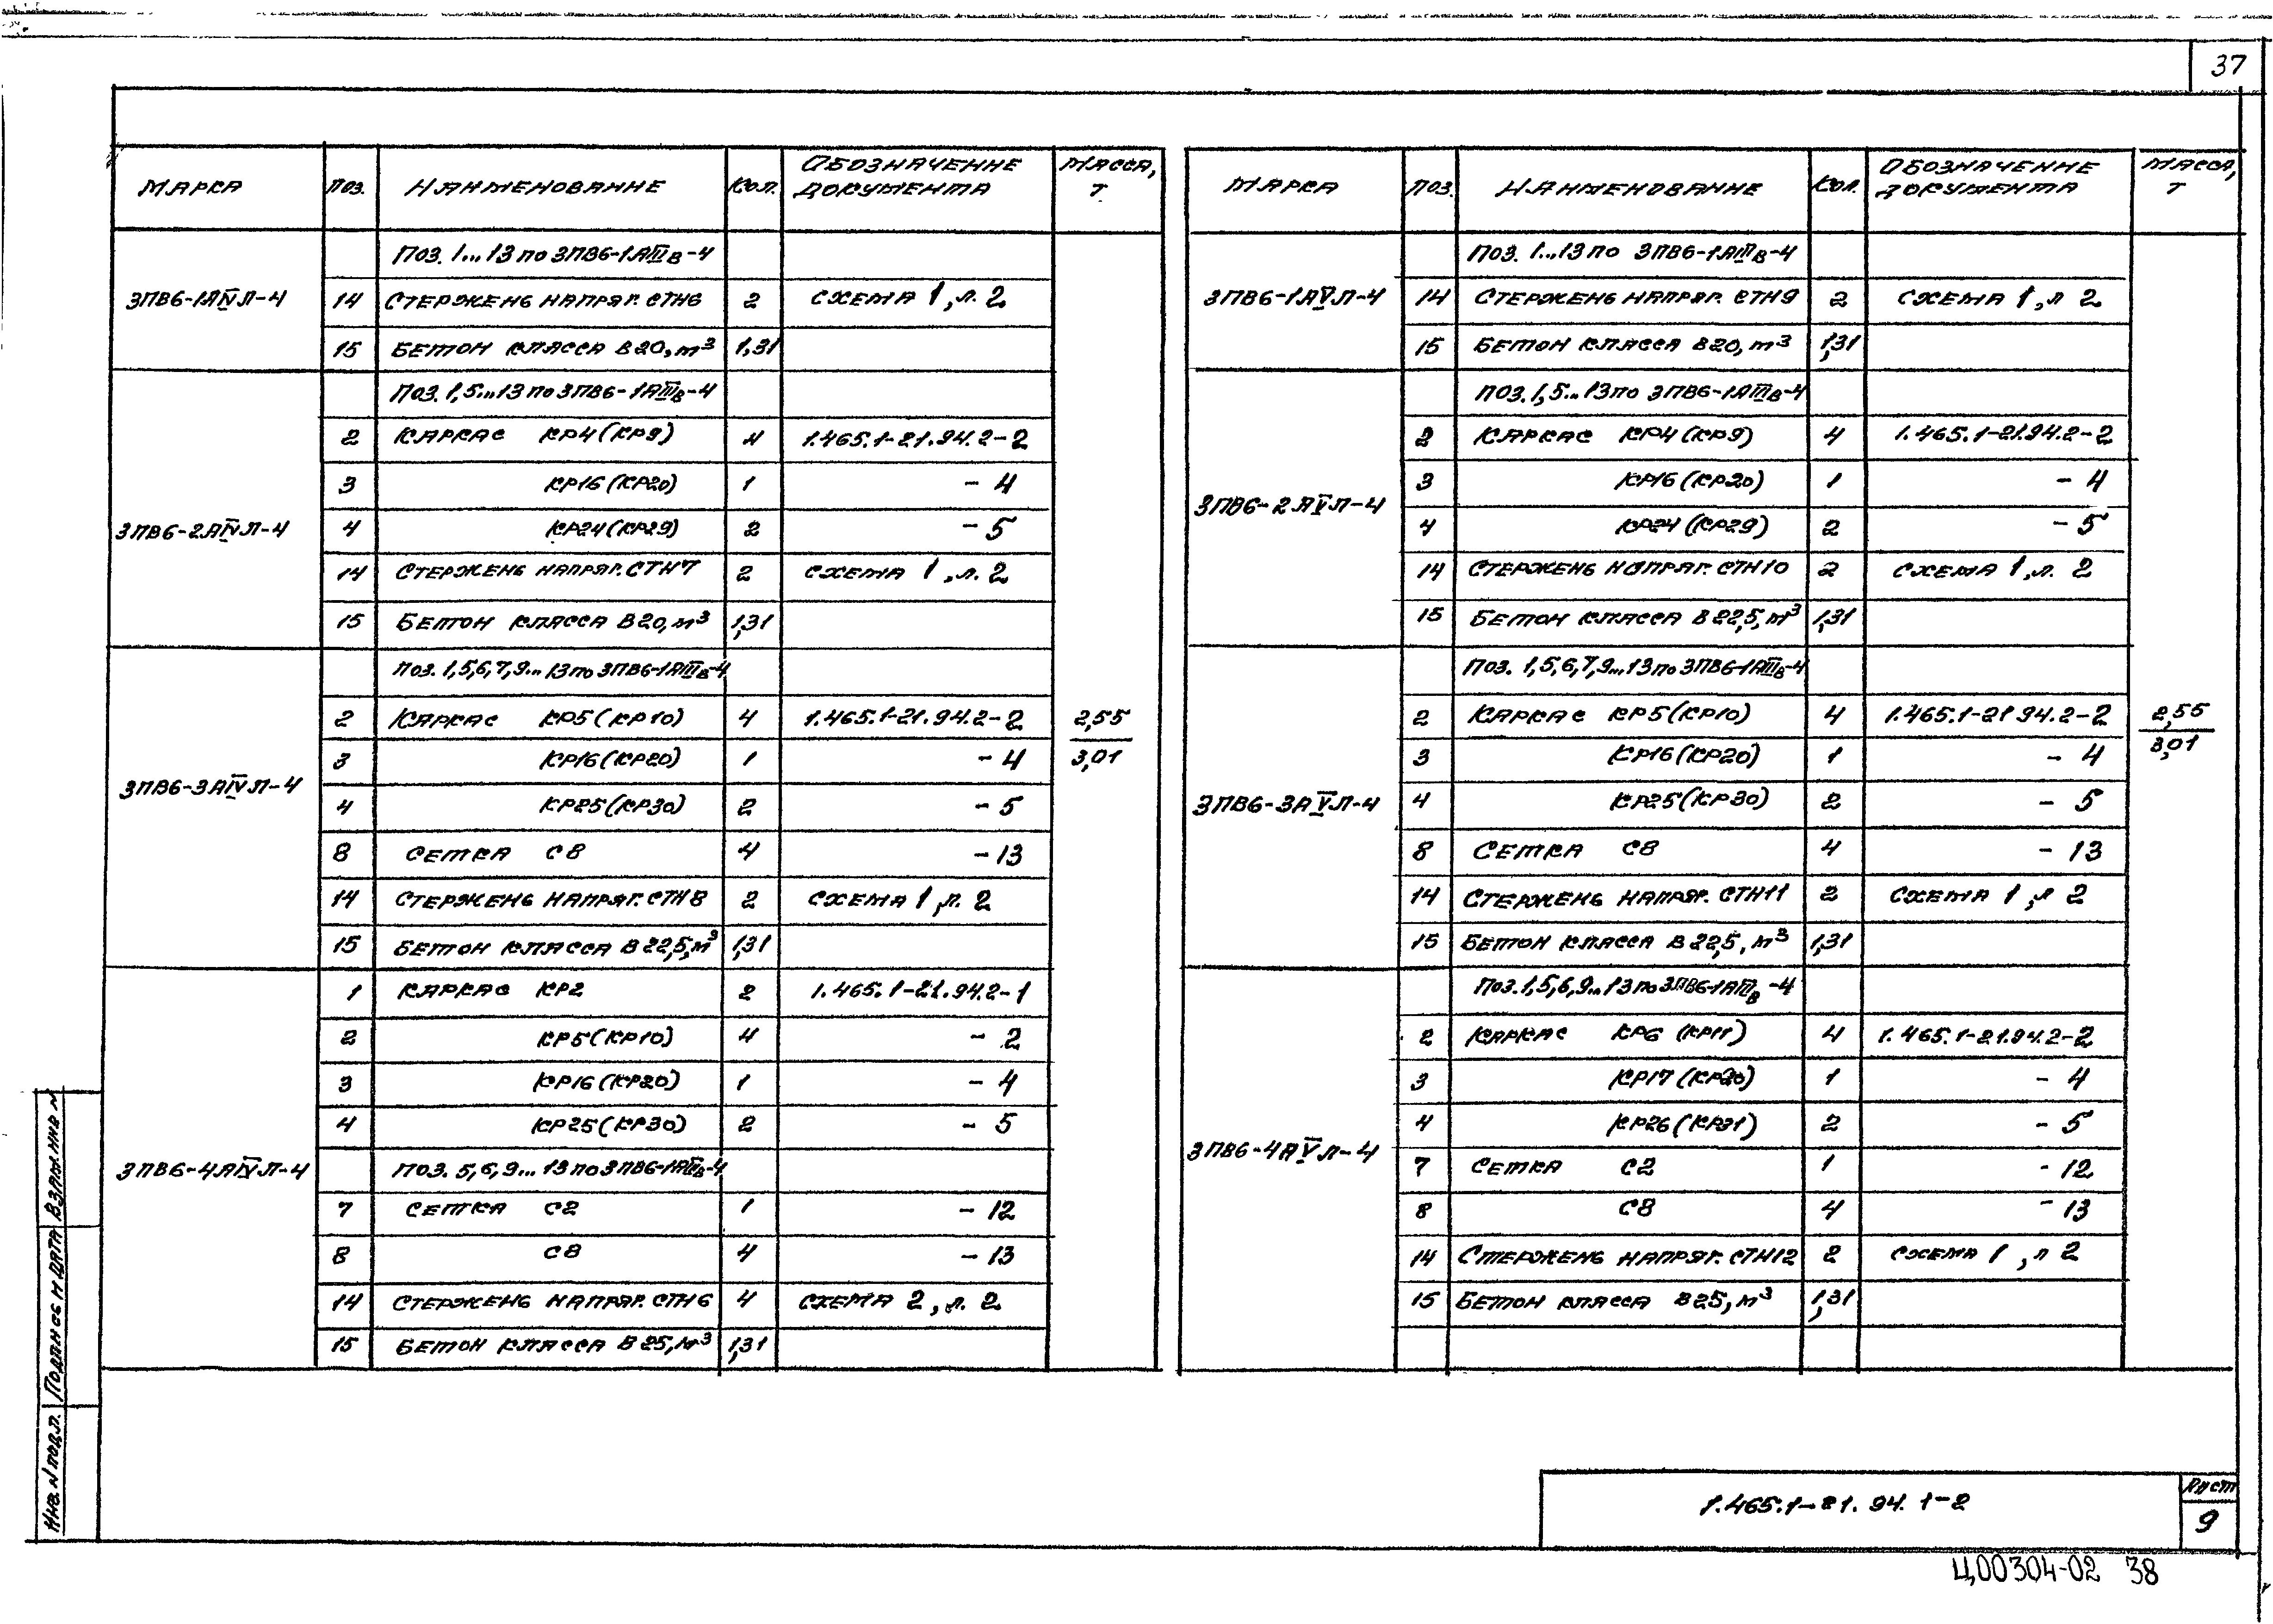 37
МАРКА ПОЗ. НАИМЕНОВАНИЕ КОЛ. ОБОЗНАЧЕНИЕ ДОКУМЕНТА МАССА, Т
3ПВ6-1АIVЛ-4
ПОЗ. 1...13 по 3ПВ6-1АIIIв-4
14 СТЕРЖЕНЬ НАПРЯГ. СТН6 2 СХЕМА 1, Л. 2
15 БЕТОН КЛАССА В20, м³ 1,31
3ПВ6-2АIVЛ-4
ПОЗ. 1,5...13 по 3ПВ6-1АIIIв-4
2 КАРКАС КР4 (КР9) 4 1.465.1-21.94.2-2
3 КР16 (КР20) 1 - 4
4 КР24 (КР29) 2 - 5
14 СТЕРЖЕНЬ НАПРЯГ. СТН7 2 СХЕМА 1, Л. 2
15 БЕТОН КЛАССА В20, м³ 1,31
3ПВ6-3АIVЛ-4
ПОЗ. 1,5,6,7,9...13 по 3ПВ6-1АIIIв-4
2 КАРКАС КР5 (КР10) 4 1.465.1-21.94.2-2
3 КР16 (КР20) 1 - 4
4 КР25 (КР30) 2 - 5
8 СЕТКА С8 4 - 13
14 СТЕРЖЕНЬ НАПРЯГ. СТН8 2 СХЕМА 1, Л. 2
15 БЕТОН КЛАССА В22,5, м³ 1,31
2,55
3,01
3ПВ6-4АIVЛ-4
1 КАРКАС КР2 2 1.465.1-21.94.2-1
2 КР5 (КР10) 4 - 2
3 КР16 (КР20) 1 - 4
4 КР25 (КР30) 2 - 5
ПОЗ. 5,6,9...13 по 3ПВ6-1АIIIв-4
7 СЕТКА С2 1 - 12
8 С8 4 - 13
14 СТЕРЖЕНЬ НАПРЯГ. СТН6 4 СХЕМА 2, Л. 2
15 БЕТОН КЛАССА В25, м³ 1,31
МАРКА ПОЗ. НАИМЕНОВАНИЕ КОЛ. ОБОЗНАЧЕНИЕ ДОКУМЕНТА МАССА, Т
3ПВ6-1АVЛ-4
ПОЗ. 1...13 по 3ПВ6-1АIIIв-4
14 СТЕРЖЕНЬ НАПРЯГ. СТН9 2 СХЕМА 1, Л 2
15 БЕТОН КЛАССА В20, м³ 1,31
3ПВ6-2АVЛ-4
ПОЗ. 1,5...13 по 3ПВ6-1АIIIв-4
2 КАРКАС КР4 (КР9) 4 1.465.1-21.94.2-2
3 КР16 (КР20) 1 - 4
4 КР24 (КР29) 2 - 5
14 СТЕРЖЕНЬ НАПРЯГ. СТН10 2 СХЕМА 1, Л. 2
15 БЕТОН КЛАССА В22,5, м³ 1,31
3ПВ6-3АVЛ-4
ПОЗ. 1,5,6,7,9...13 по 3ПВ6-1АIIIв-4
2 КАРКАС КР5 (КР10) 4 1.465.1-21 94.2-2
3 КР16 (КР20) 1 - 4
4 КР25 (КР30) 2 - 5
8 СЕТКА С8 4 - 13
14 СТЕРЖЕНЬ НАПРЯГ. СТН11 2 СХЕМА 1, Л 2
15 БЕТОН КЛАССА В22,5, м³ 1,31
2,55
3,01
3ПВ6-4АVЛ-4
ПОЗ. 1,5,6,9...13 по 3ПВ6-1АIIIв-4
2 КАРКАС КР6 (КР11) 4 1.465.1-21.94.2-2
3 КР17 (КР20) 1 - 4
4 КР26 (КР31) 2 - 5
7 СЕТКА С2 1 - 12
8 С8 4 - 13
14 СТЕРЖЕНЬ НАПРЯГ. СТН12 2 СХЕМА 1, Л 2
15 БЕТОН КЛАССА В25, м³ 1,31
ИНВ. N ПОДЛ. ПОДПИСЬ И ДАТА ВЗАМ. ИНВ N
1.465.1-21.94.1-2
Лист
9
Ц00304-02 38